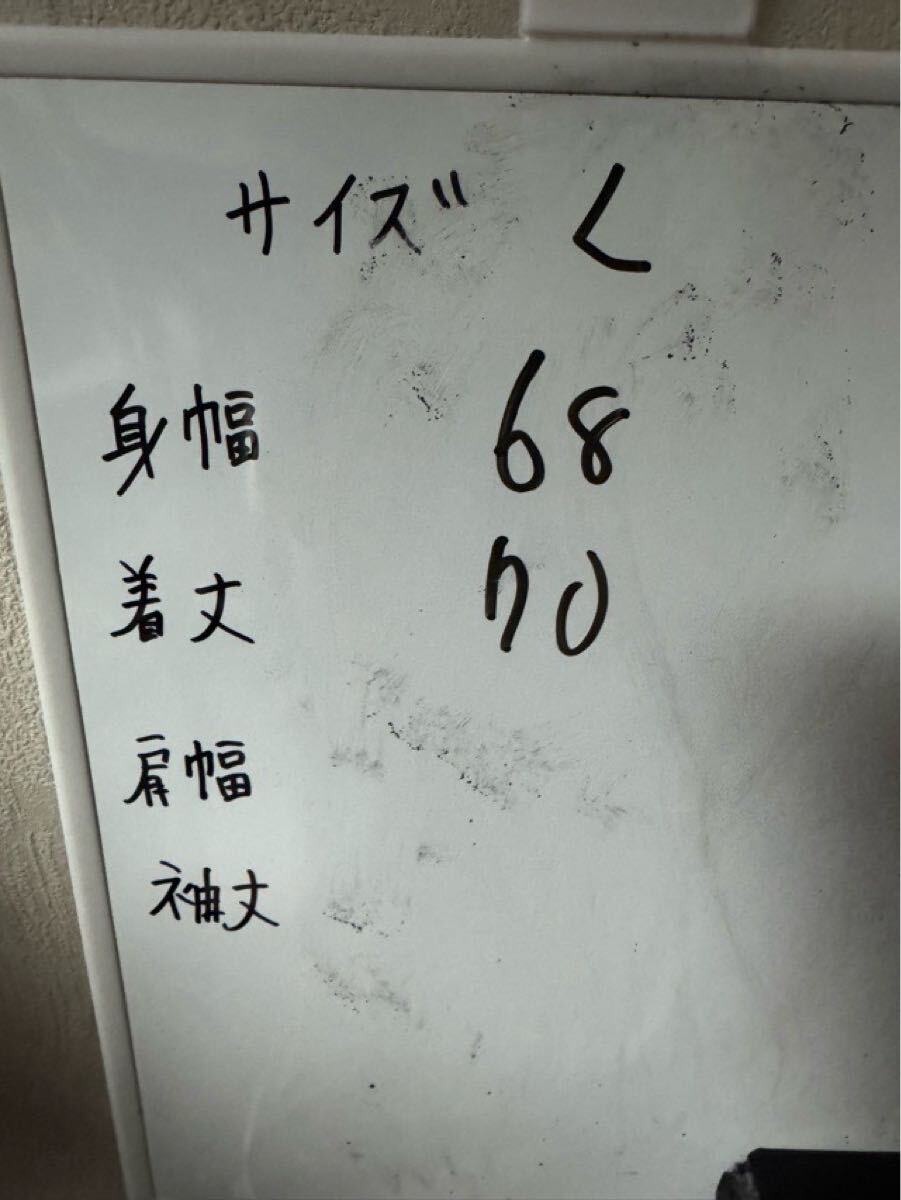 サイズ L
身幅 68
着丈 70
肩幅
袖丈